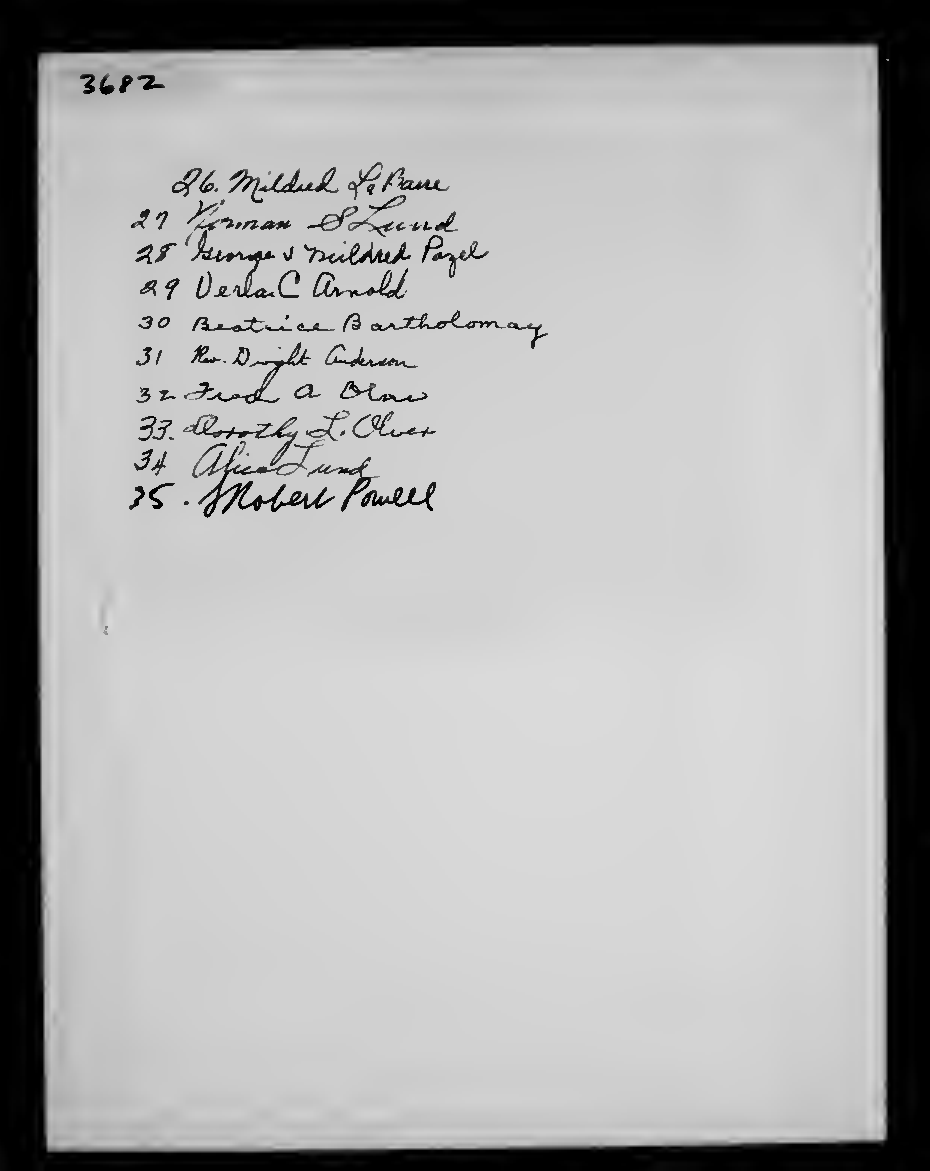 3682
26. Mildred LaBarre
27 Norman S Lund
28 George & Mildred Pazel
29 Verla C Arnold
30 Beatrice Bartholomay
31 Rev. Dwight Anderson
32 Fred A
33. Dorothy L. Olver
34 Alice Lund
35. Robert Powell